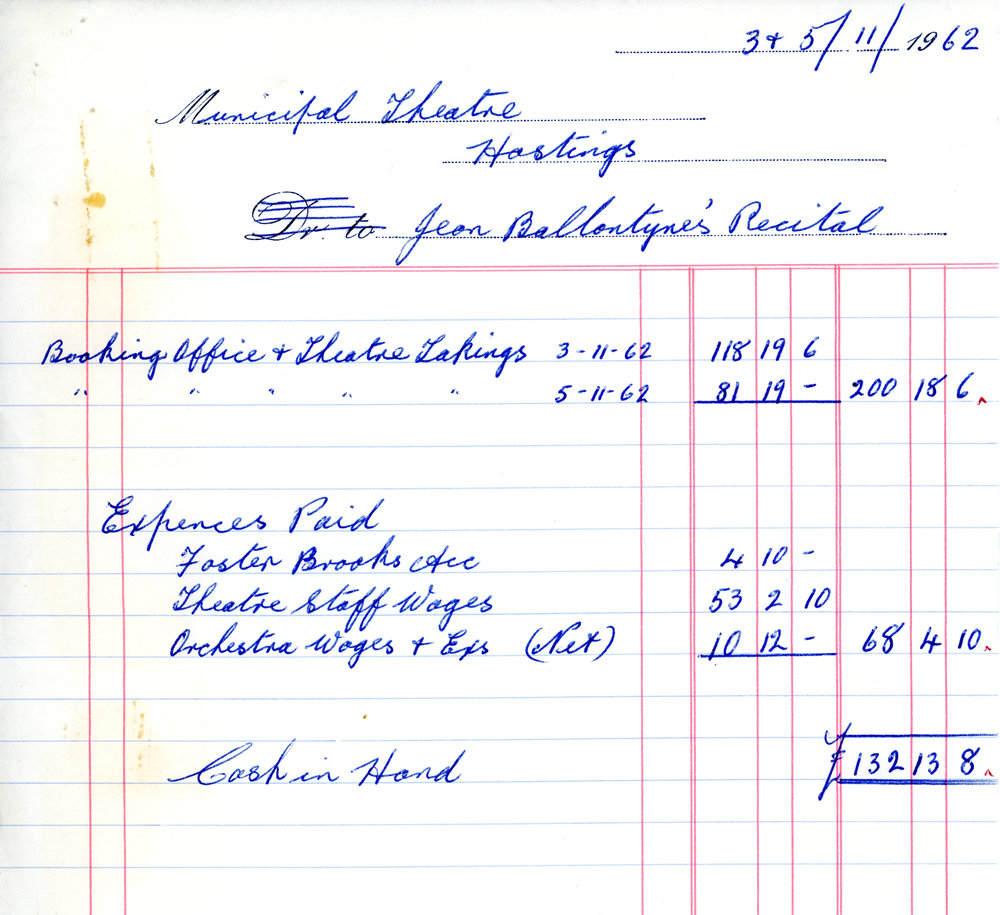 3 & 5/11/1962
Municipal Theatre
Hastings
Dr. to Jean Ballantyne's Recital
Booking Office & Theatre Takings 3-11-62 118 19 6
" " " " " 5-11-62 81 19 - 200 18 6
Expences Paid
Foster Brooks Acc 4 10 -
Theatre Staff Wages 53 2 10
Orchestra Wages & Exs (Net) 10 12 - 68 4 10
Cash in Hand £ 132 13 8